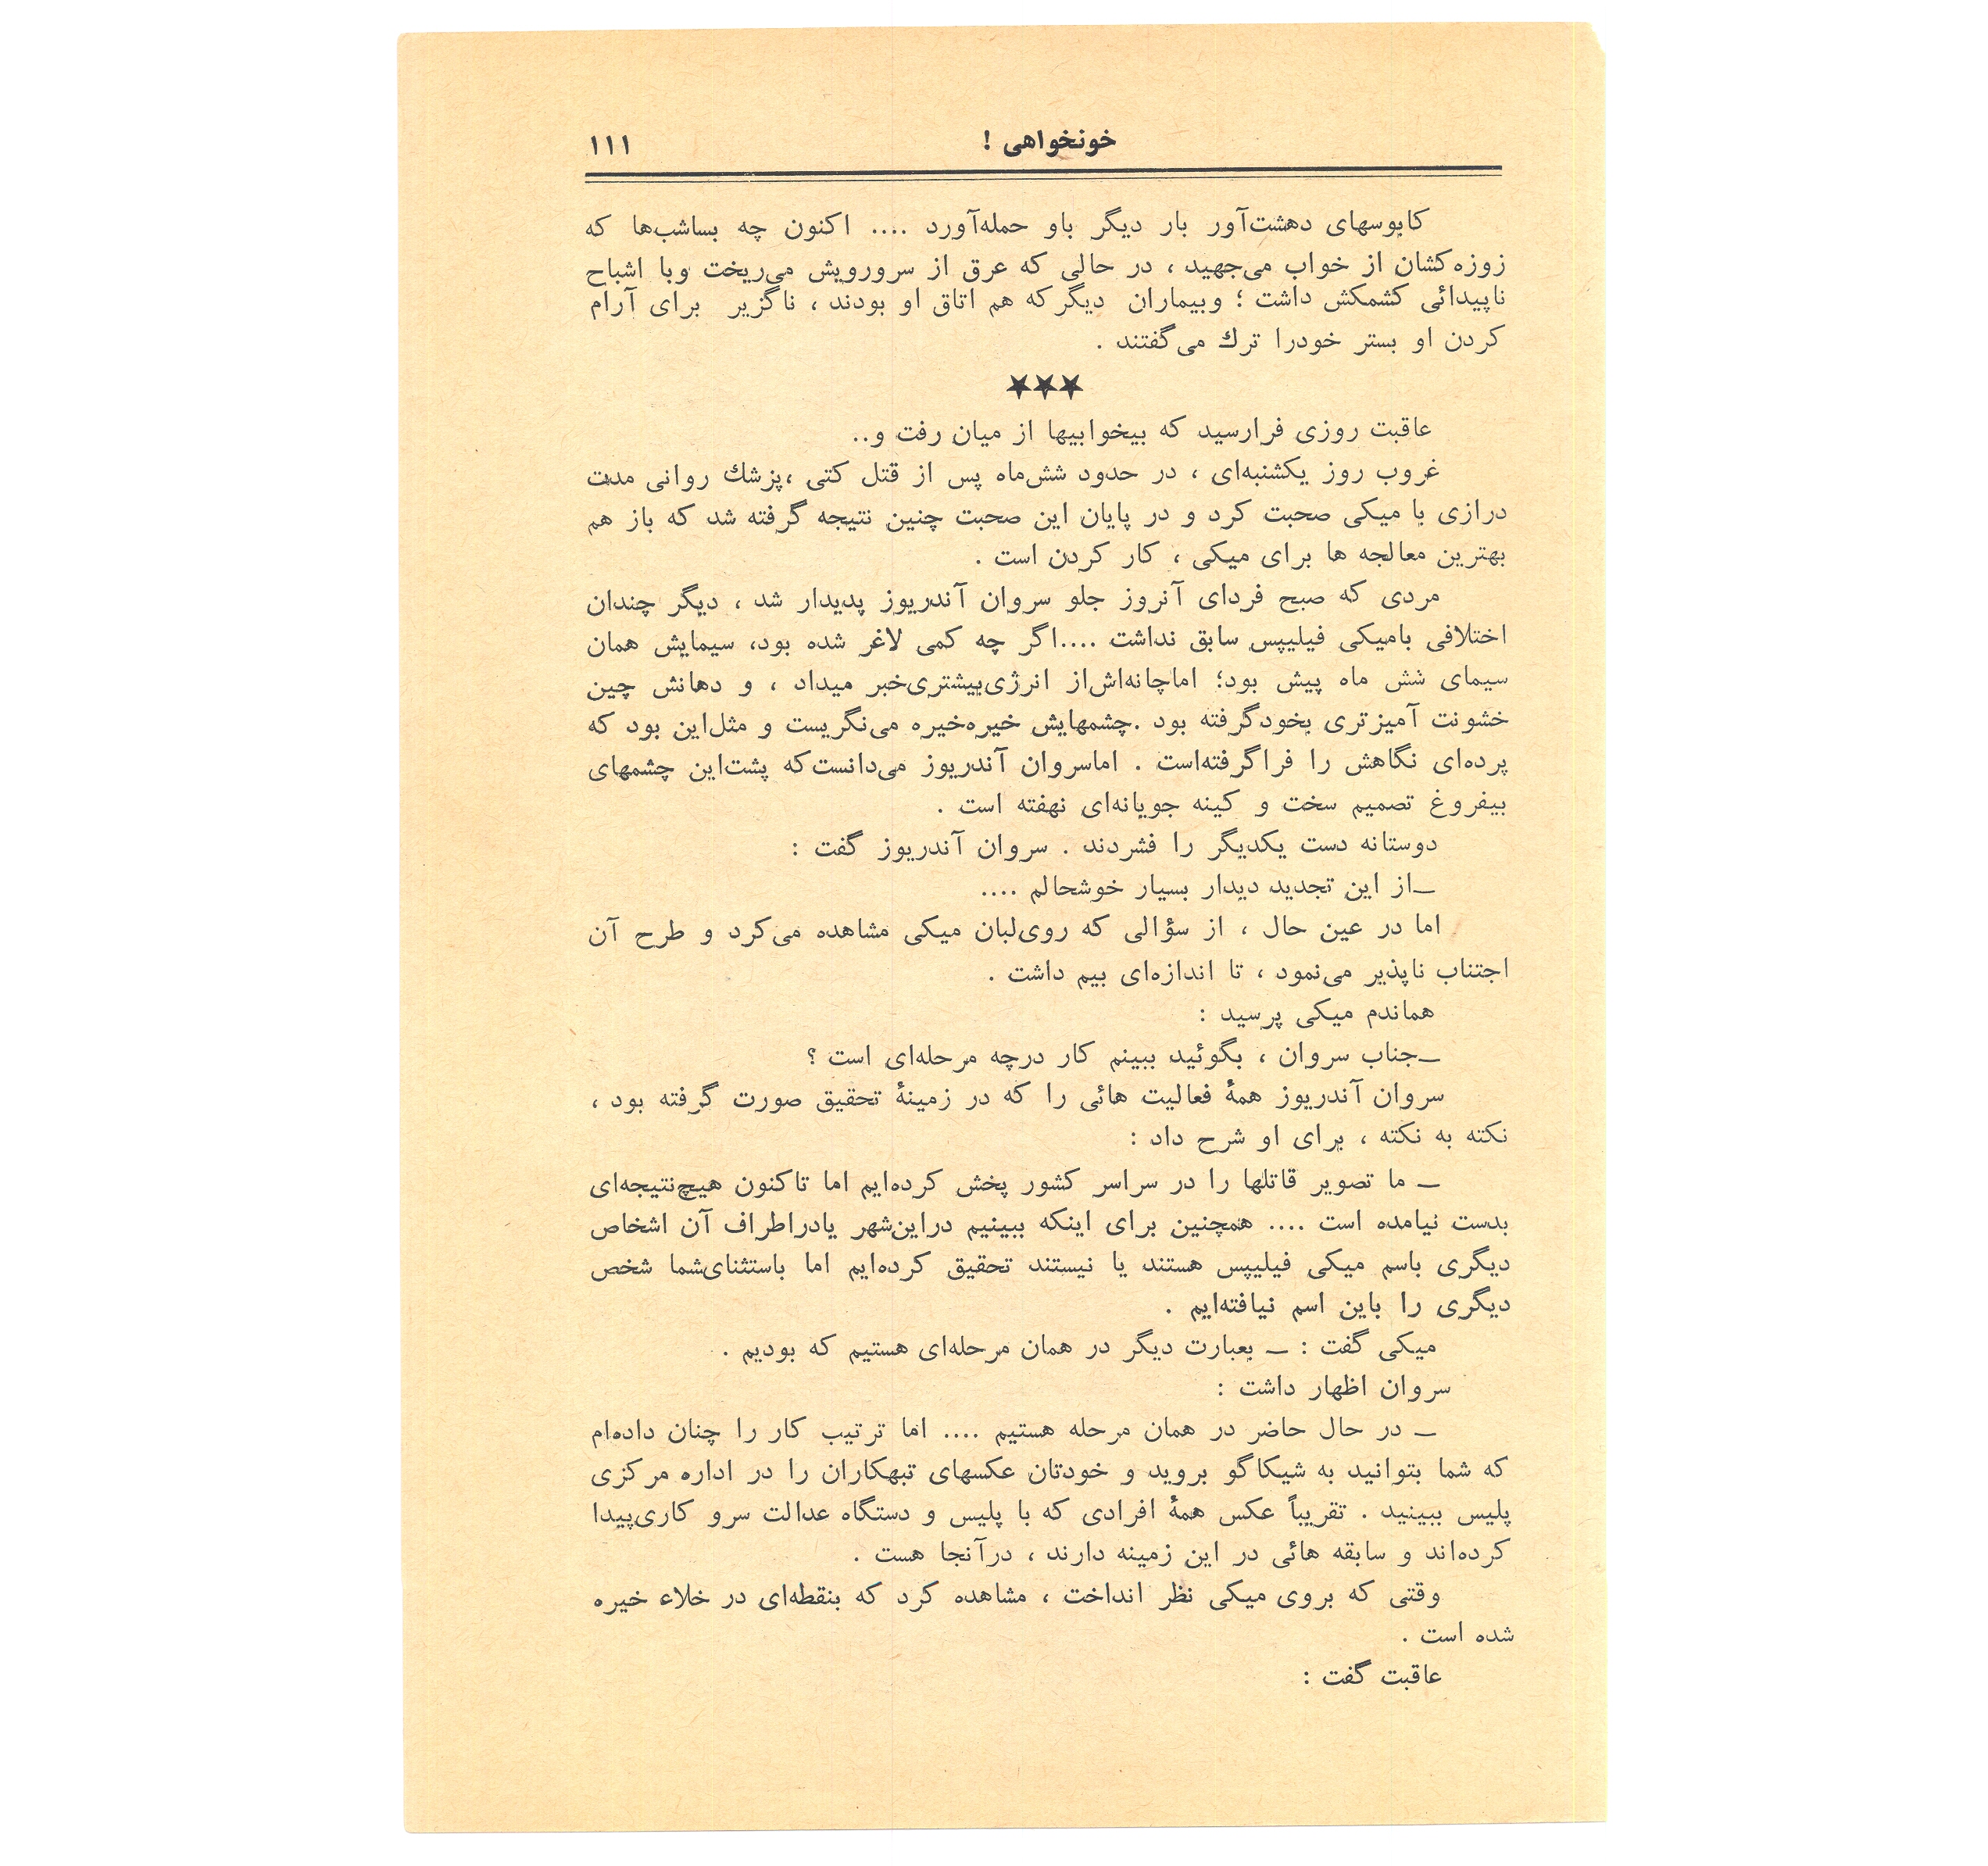 خونخواهی !
۱۱۱
کابوسهای دهشت‌آور بار دیگر باو حمله‌آورد .... اکنون چه بساشب‌ها که
زوزه‌کشان از خواب می‌جهید ، در حالی که عرق از سرورویش می‌ریخت وبا اشباح
ناپیدائی کشمکش داشت ؛ وبیماران دیگرکه هم اتاق او بودند ، ناگزیر برای آرام
کردن او بستر خودرا ترك می‌گفتند .
★★★
عاقبت روزی فرارسید که بیخوابیها از میان رفت و..
غروب روز یکشنبه‌ای ، در حدود شش‌ماه پس از قتل کتی ،پزشك روانی مدت
درازی با میکی صحبت کرد و در پایان این صحبت چنین نتیجه گرفته شد که باز هم
بهترین معالجه ها برای میکی ، کار کردن است .
مردی که صبح فردای آنروز جلو سروان آندریوز پدیدار شد ، دیگر چندان
اختلافی بامیکی فیلیپس سابق نداشت ....اگر چه کمی لاغر شده بود، سیمایش همان
سیمای شش ماه پیش بود؛ اماچانه‌اش‌از انرژی‌بیشتری‌خبر میداد ، و دهانش چین
خشونت آمیزتری بخودگرفته بود .چشمهایش خیره‌خیره می‌نگریست و مثل‌این بود که
پرده‌ای نگاهش را فراگرفته‌است . اماسروان آندریوز می‌دانست‌که پشت‌این چشمهای
بیفروغ تصمیم سخت و کینه جویانه‌ای نهفته است .
دوستانه دست یکدیگر را فشردند . سروان آندریوز گفت :
ــ از این تجدید دیدار بسیار خوشحالم ....
اما در عین حال ، از سؤالی که روی‌لبان میکی مشاهده می‌کرد و طرح آن
اجتناب ناپذیر می‌نمود ، تا اندازه‌ای بیم داشت .
هماندم میکی پرسید :
ــ جناب سروان ، بگوئید ببینم کار درچه مرحله‌ای است ؟
سروان آندریوز همهٔ فعالیت هائی را که در زمینهٔ تحقیق صورت گرفته بود ،
نکته به نکته ، برای او شرح داد :
ــ ما تصویر قاتلها را در سراسر کشور پخش کرده‌ایم اما تاکنون هیچ‌نتیجه‌ای
بدست نیامده است .... همچنین برای اینکه ببینیم دراین‌شهر یادراطراف آن اشخاص
دیگری باسم میکی فیلیپس هستند یا نیستند تحقیق کرده‌ایم اما باستثنای‌شما شخص
دیگری را باین اسم نیافته‌ایم .
میکی گفت : ــ بعبارت دیگر در همان مرحله‌ای هستیم که بودیم .
سروان اظهار داشت :
ــ در حال حاضر در همان مرحله هستیم .... اما ترتیب کار را چنان داده‌ام
که شما بتوانید به شیکاگو بروید و خودتان عکسهای تبهکاران را در اداره مرکزی
پلیس ببینید . تقریباً عکس همهٔ افرادی که با پلیس و دستگاه عدالت سرو کاری‌پیدا
کرده‌اند و سابقه هائی در این زمینه دارند ، درآنجا هست .
وقتی که بروی میکی نظر انداخت ، مشاهده کرد که بنقطه‌ای در خلاء خیره
شده است .
عاقبت گفت :